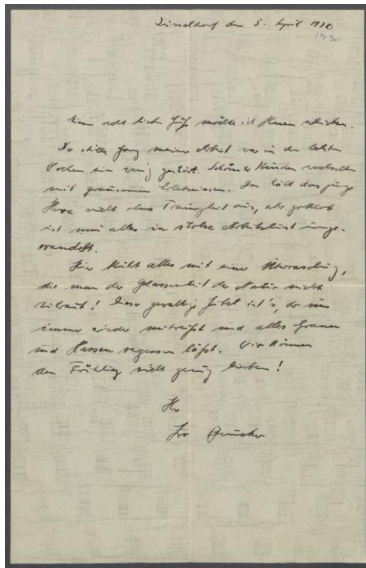 Düsseldorf den 5. April 1930
1930
Einen recht lieben Gruß möchte ich Ihnen schicken.
Der stille Gang meiner Arbeit war in den letzten
Wochen ein wenig gestört. Schöne Stunden wechselten
mit grausamen Erlebnissen. Das hält das junge
Herz nicht ohne Traurigkeit aus, als
ist nun alles in stolze Arbeitslust umge-
wandelt.
Hier blüht alles mit einer Überraschung,
die man der Gelassenheit der Natur nicht
zutraut! Dieser gewaltige Jubel ist's, der uns
immer wieder mitreißt und alles Grauen
und Hassen vergessen läßt. Wir können
den Frühling nicht genug lieben!
Ihr